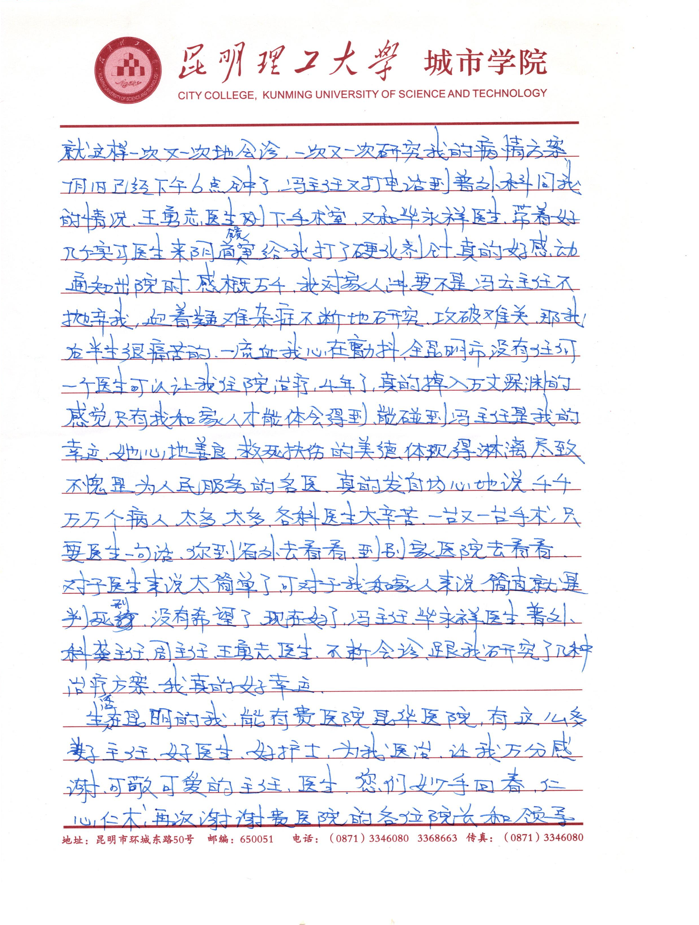 昆明理工大学 城市学院
CITY COLLEGE, KUNMING UNIVERSITY OF SCIENCE AND TECHNOLOGY
就这样一次又一次地会诊，一次又一次研究我的病情方案
18日已经下午6点钟了，冯主任又打电话到普外科问我
的情况，王勇志医生刚下手术室，又和毕永祥医生，带着好
几个实习医生来阴道腹部给我打了硬化剂针，真的好感动
通知出院时，感概万千，我对家人讲要不是冯云主任不
抛弃我，迎着疑难杂症不断地研究，攻破难关，那我
后半生很痛苦的，一流血我心在颤抖，全昆明市没有任何
一个医生可以让我住院治疗，4年了，真的掉入万丈深渊的
感觉只有我和家人才能体会得到，能碰到冯主任是我的
幸运，她心地善良，救死扶伤的美德，体现得淋漓尽致
不愧是为人民服务的名医，真的发自内心地说，千千
万万个病人，太多，太多，各科医生太辛苦，一台又一台手术，只
要医生一句话，你到省外去看看，到别家医院去看看，
对于医生来说太简单了可对于我和家人来说，简直就是
判死刑，没有希望了，现在好了，冯主任，毕永祥医生，普外
科龚主任，周主任，王勇志医生，不断会诊，跟我研究了几种
治疗方案，我真的好幸运。
生活在昆明的我，能有贵医院昆华医院，有这么多
好主任，好医生，好护士，为我医治，让我万分感
谢，可敬可爱的主任，医生，您们妙手回春，仁
心仁术，再次谢谢贵医院的各位院长和领导
地址：昆明市环城东路50号 邮编：650051 电话：（0871）3346080 3368663 传真：（0871）3346080